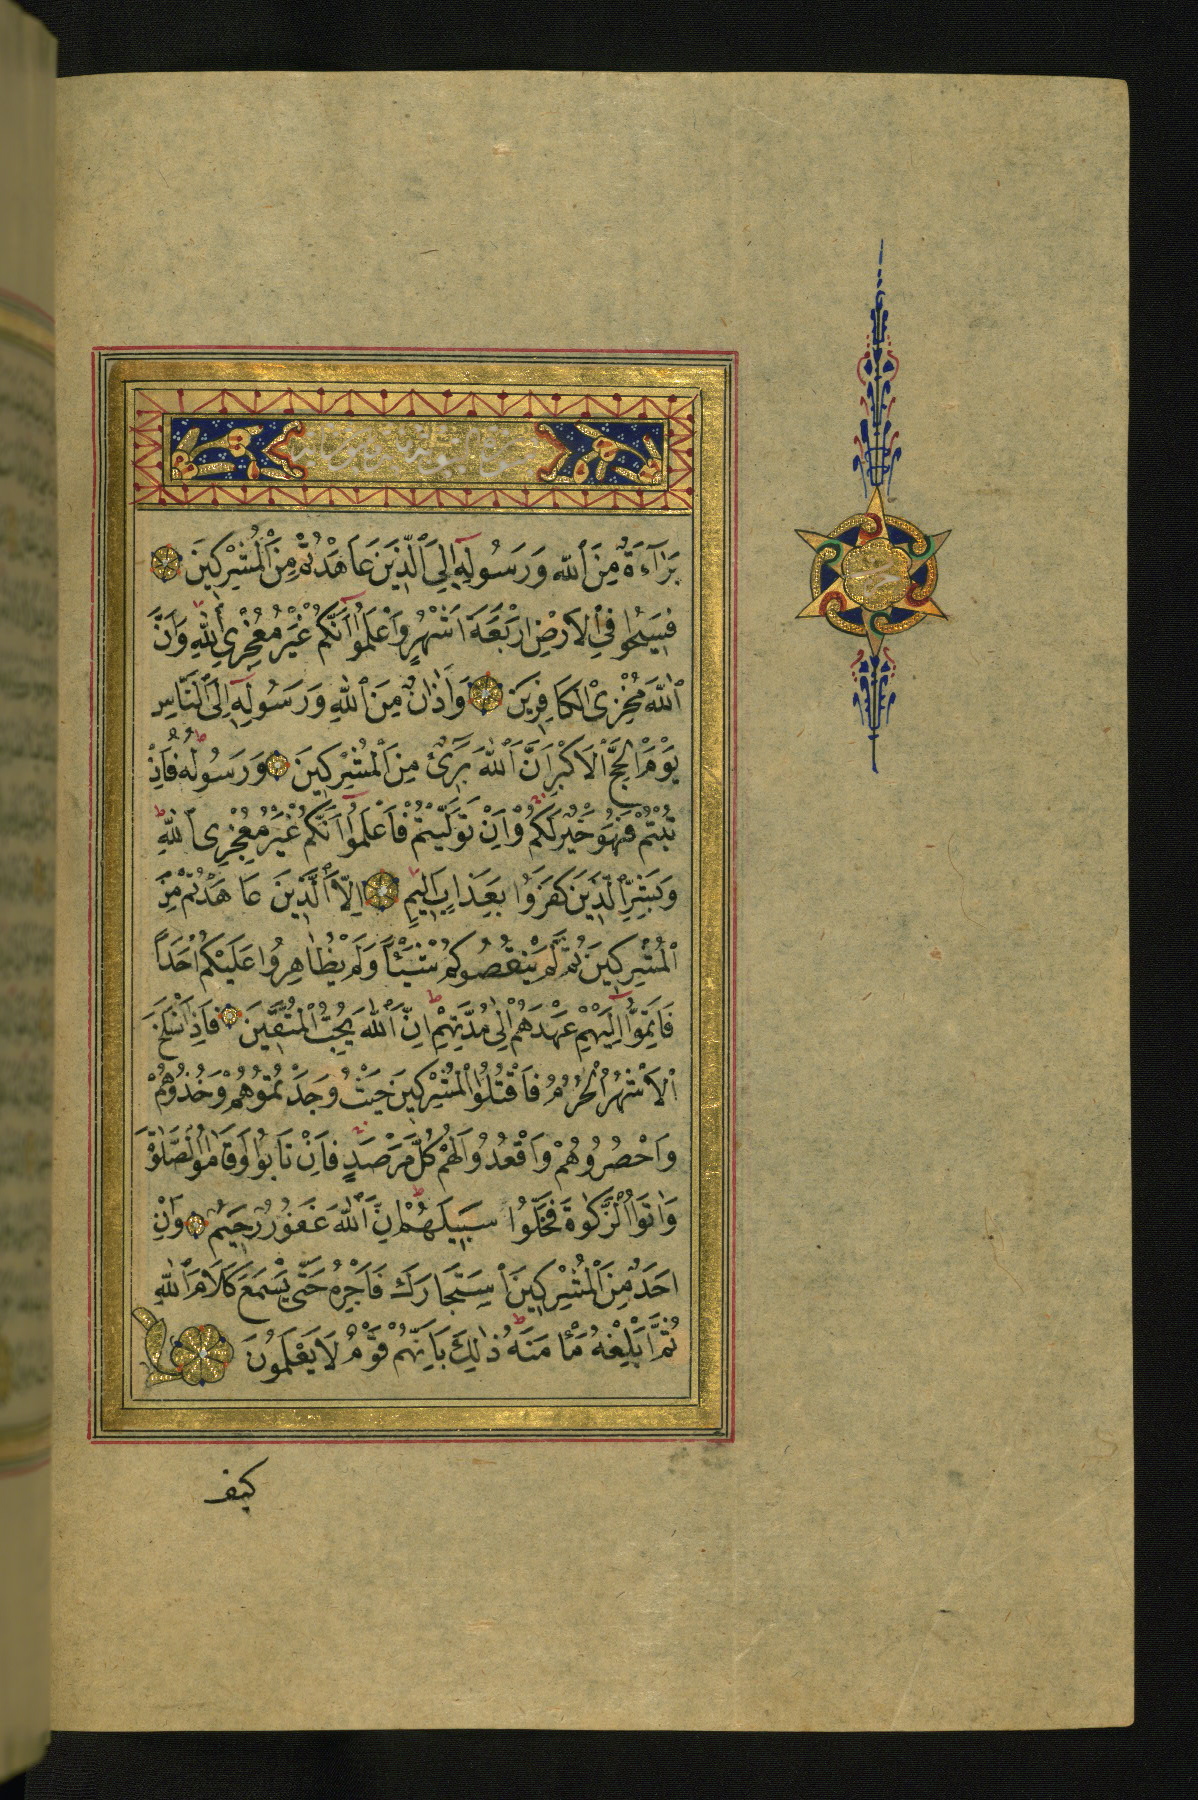 بَرَآءَةٌ مِنَ ٱللّٰهِ وَرَسُولِهِٓ اِلَى ٱلَّذِينَ عَاهَدْتُمْ مِنَ ٱلْمُشْرِكِينَ
فَسِيحُوا فِي ٱلْاَرْضِ اَرْبَعَةَ اَشْهُرٍ وَاعْلَمُوٓا اَنَّكُمْ غَيْرُ مُعْجِزِي ٱللّٰهِ وَاَنَّ
ٱللّٰهَ مُخْزِي ٱلْكَافِرِينَ وَاَذَانٌ مِنَ ٱللّٰهِ وَرَسُولِهِٓ اِلَى ٱلنَّاسِ
يَوْمَ ٱلْحَجِّ ٱلْاَكْبَرِ اَنَّ ٱللّٰهَ بَرِٓيءٌ مِنَ ٱلْمُشْرِكِينَ وَرَسُولُهُ فَاِنْ
تُبْتُمْ فَهُوَ خَيْرٌ لَكُمْ وَاِنْ تَوَلَّيْتُمْ فَاعْلَمُوٓا اَنَّكُمْ غَيْرُ مُعْجِزِي ٱللّٰهِ
وَبَشِّرِ ٱلَّذِينَ كَفَرُوا بِعَذَابٍ اَلِيمٍ اِلَّا ٱلَّذِينَ عَاهَدْتُمْ مِنَ
ٱلْمُشْرِكِينَ ثُمَّ لَمْ يَنْقُصُوكُمْ شَيْئًا وَلَمْ يُظَاهِرُوا عَلَيْكُمْ اَحَدًا
فَاَتِمُّوٓا اِلَيْهِمْ عَهْدَهُمْ اِلٰى مُدَّتِهِمْ اِنَّ ٱللّٰهَ يُحِبُّ ٱلْمُتَّقِينَ فَاِذَا ٱنْسَلَخَ
ٱلْاَشْهُرُ ٱلْحُرُمُ فَاقْتُلُوا ٱلْمُشْرِكِينَ حَيْثُ وَجَدْتُمُوهُمْ وَخُذُوهُمْ
وَاحْصُرُوهُمْ وَاقْعُدُوا لَهُمْ كُلَّ مَرْصَدٍ فَاِنْ تَابُوا وَقَامُوا ٱلصَّلٰوةَ
وَاٰتَوُا ٱلزَّكٰوةَ فَخَلُّوا سَبِيلَهُمْ اِنَّ ٱللّٰهَ غَفُورٌ رَحِيمٌ وَاِنْ
اَحَدٌ مِنَ ٱلْمُشْرِكِينَ ٱسْتَجَارَكَ فَاَجِرْهُ حَتّٰى يَسْمَعَ كَلَامَ ٱللّٰهِ
ثُمَّ اَبْلِغْهُ مَأْمَنَهُ ذٰلِكَ بِاَنَّهُمْ قَوْمٌ لَا يَعْلَمُونَ
كيف